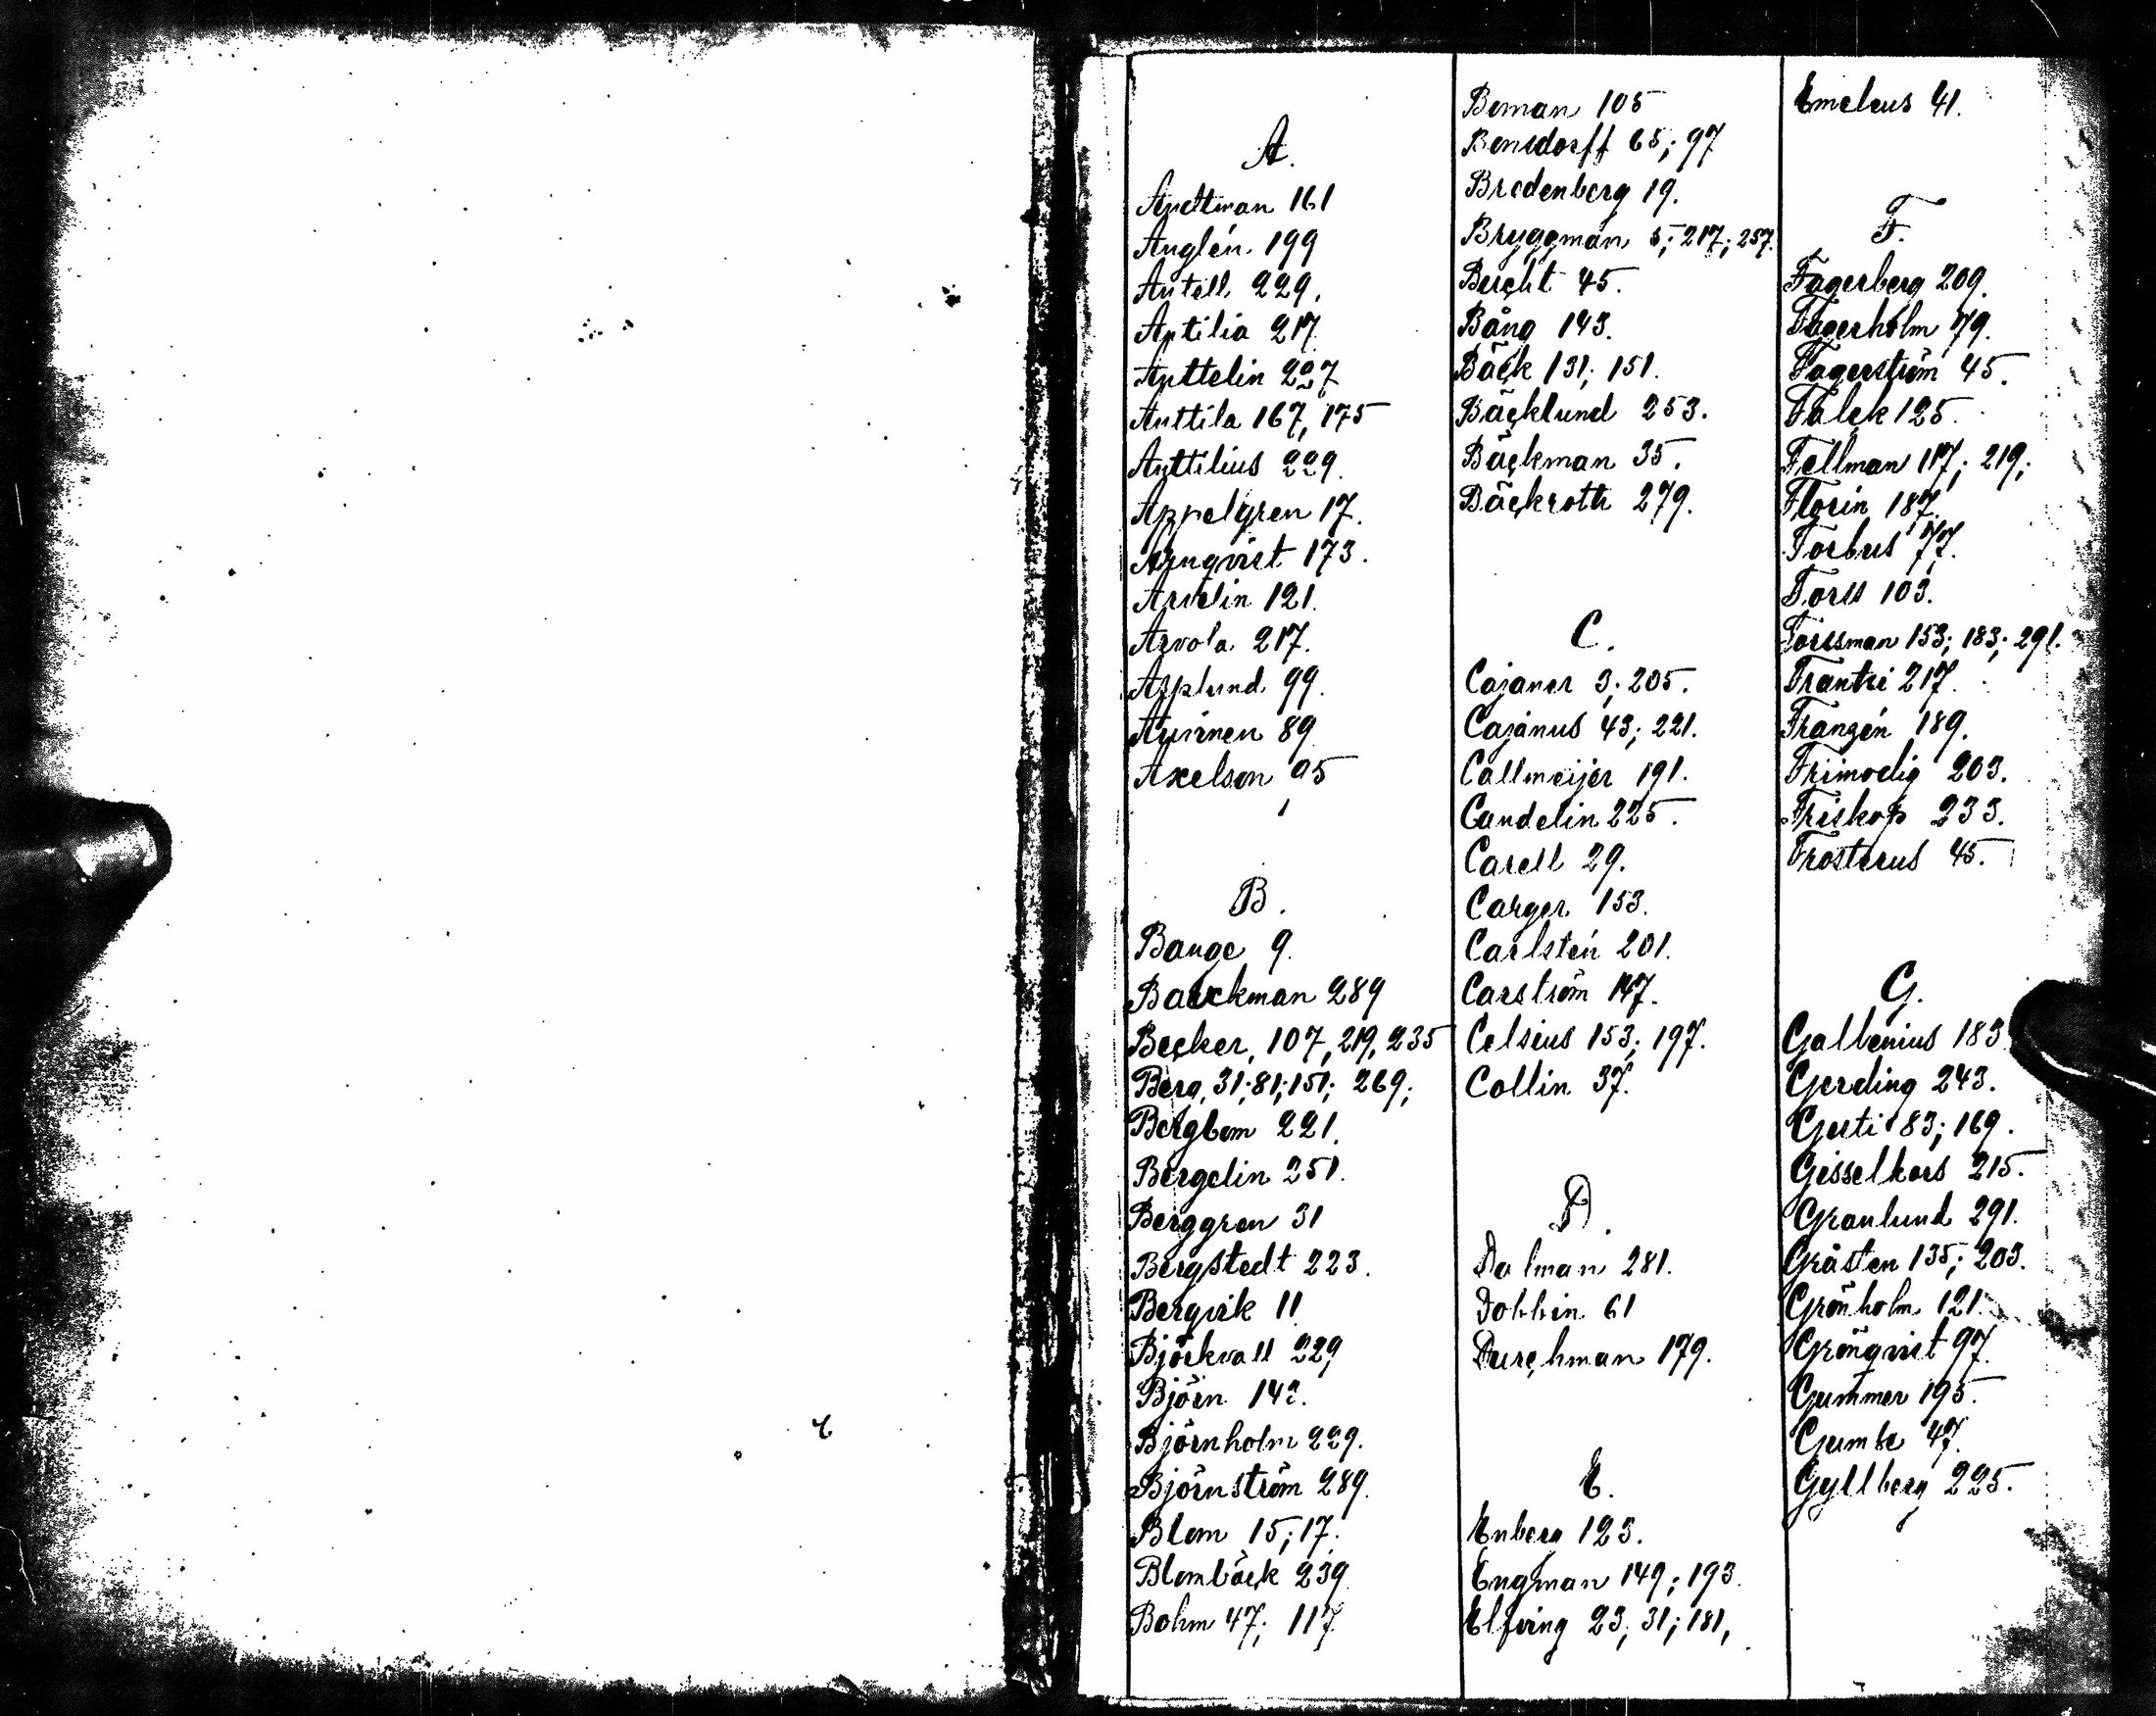 A.
Andtman 161
Anglén 199
Antell 229.
Antilia 217
Anttelin 227
Anttila 167, 175
Anttilius 229.
Appelgren 17.
Arnqvist 173.
Arvelin 121.
Arvola 217.
Asplund 99.
Auvinen 89
Axelson 95
B.
Bange 9.
Barckman 289
Becker, 107, 219, 235
Berg, 31; 81; 151; 269;
Bergbom 221.
Bergelin 251.
Berggren 31
Bergstedt 223.
Bergvik 11
Björkvall 229
Björn 143.
Björnholm 229.
Björnström 289.
Blom 15; 17.
Blombäck 239
Bohm 47; 117
Boman 105
Bonsdorff 65; 97
Bredenberg 19.
Bryggman 5; 217; 257.
Bucht 45.
Bång 143.
Bäck 131; 151.
Bäcklund 253.
Bäckman 35.
Bäckroth 279.
C.
Cajaner 3; 205.
Cajanus 43; 221.
Callmeijer 191.
Candelin 225.
Carell 29.
Carger 153.
Carlstén 201.
Carström 147.
Celsius 153; 197.
Collin 37.
D.
Dalman 281.
Dobbin 61
Durchman 179.
E.
Enberg 123.
Engman 149; 193.
Elfving 23; 31; 181,
Emeleus 41.
F.
Fagerberg 209.
Fagerholm 79.
Fagerström 45.
Falck 125.
Fellman 117; 219;
Florin 187.
Forbus 77.
Fors 103.
Forssman 153; 183; 291.
Frantsi 217.
Franzén 189.
Frimodig 203.
Friskop 233.
Frosterus 45.
G.
Gallenius 183
Gerding 243.
Gerti 83; 169.
Gisselkors 215.
Granlund 291.
Gråsten 135; 203.
Grönholm 121.
Grönqvist 97.
Gummer 195.
Gumse 47.
Gyllberg 225.